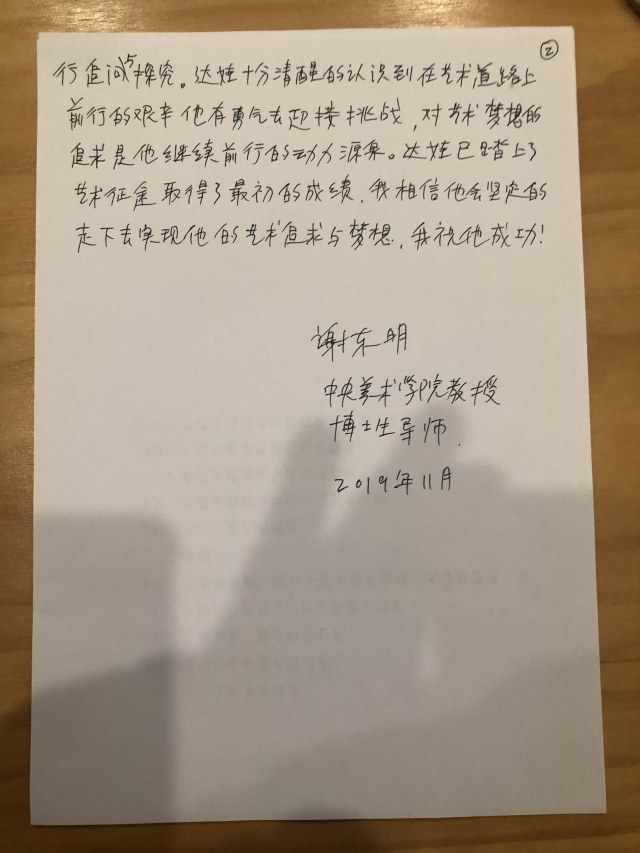 ②
行追问与探究。达娃十分清醒的认识到在艺术道路上
前行的艰辛他有勇气去迎接挑战,对艺术梦想的
追求是他继续前行的动力源泉。达娃已踏上了
艺术征途取得了最初的成绩,我相信他会坚定的
走下去实现他的艺术追求与梦想,我祝他成功!
谢东明
中央美术学院教授
博士生导师.
2019年11月